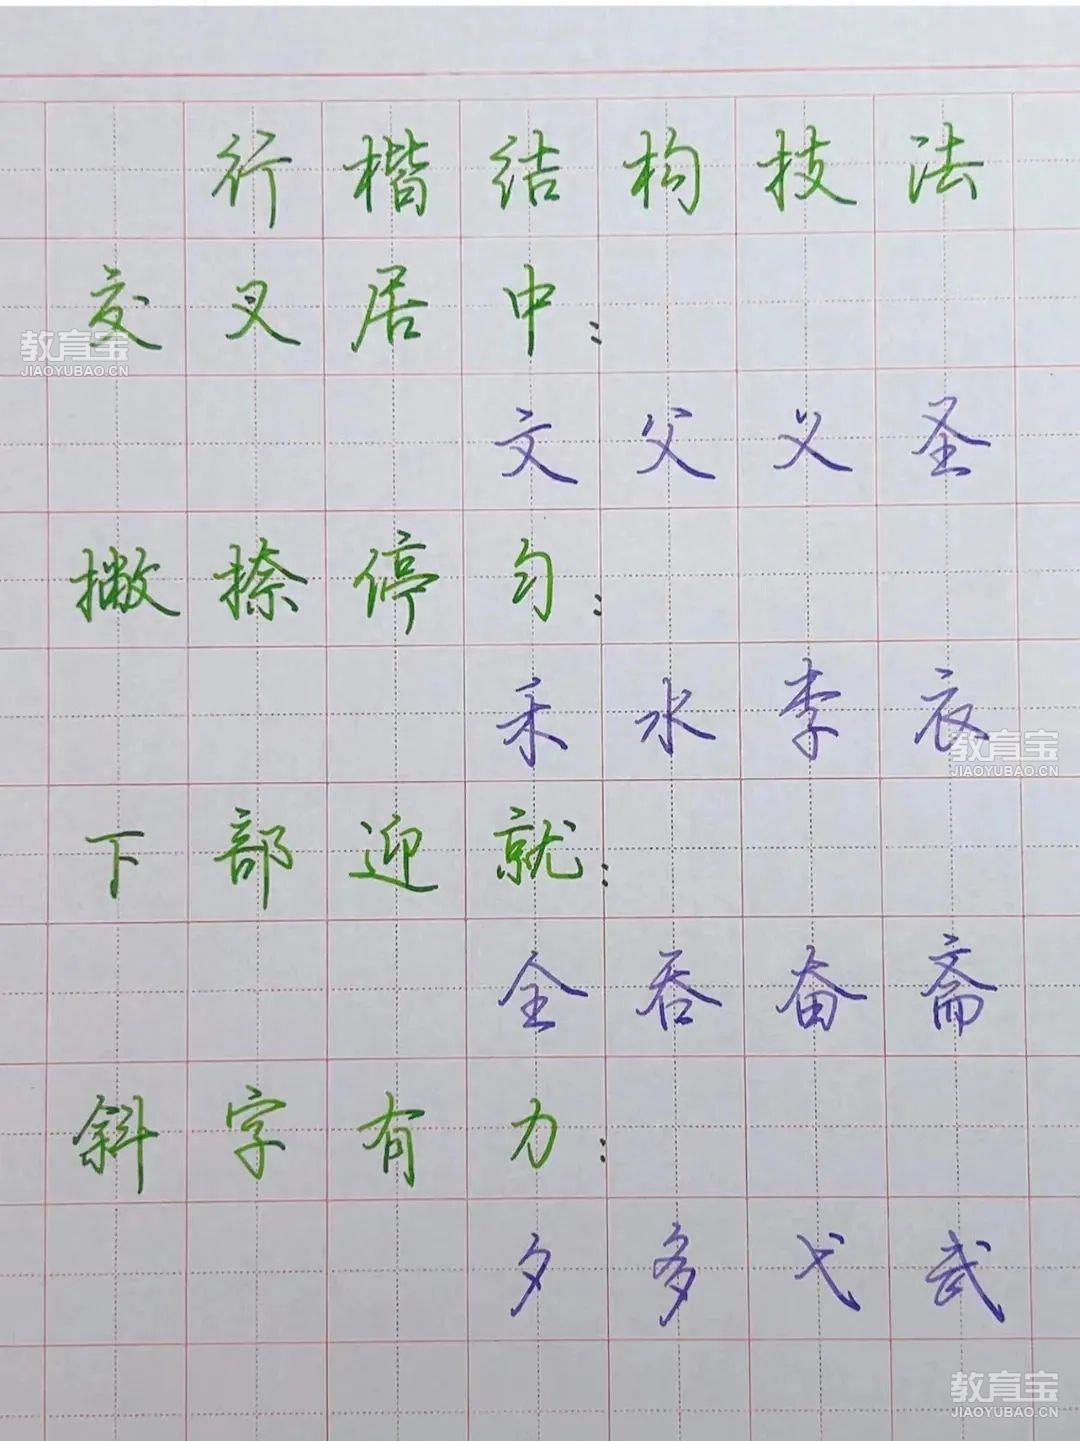 行楷结构技法
交叉居中：
教育宝
JIAOYUBAO.CN
文父义圣
撇捺停匀：
禾水李衣
教育宝
JIAOYUBAO.CN
下部迎就：
全吞奋斋
斜字有力：
夕多弋武
教育宝
JIAOYUBAO.CN